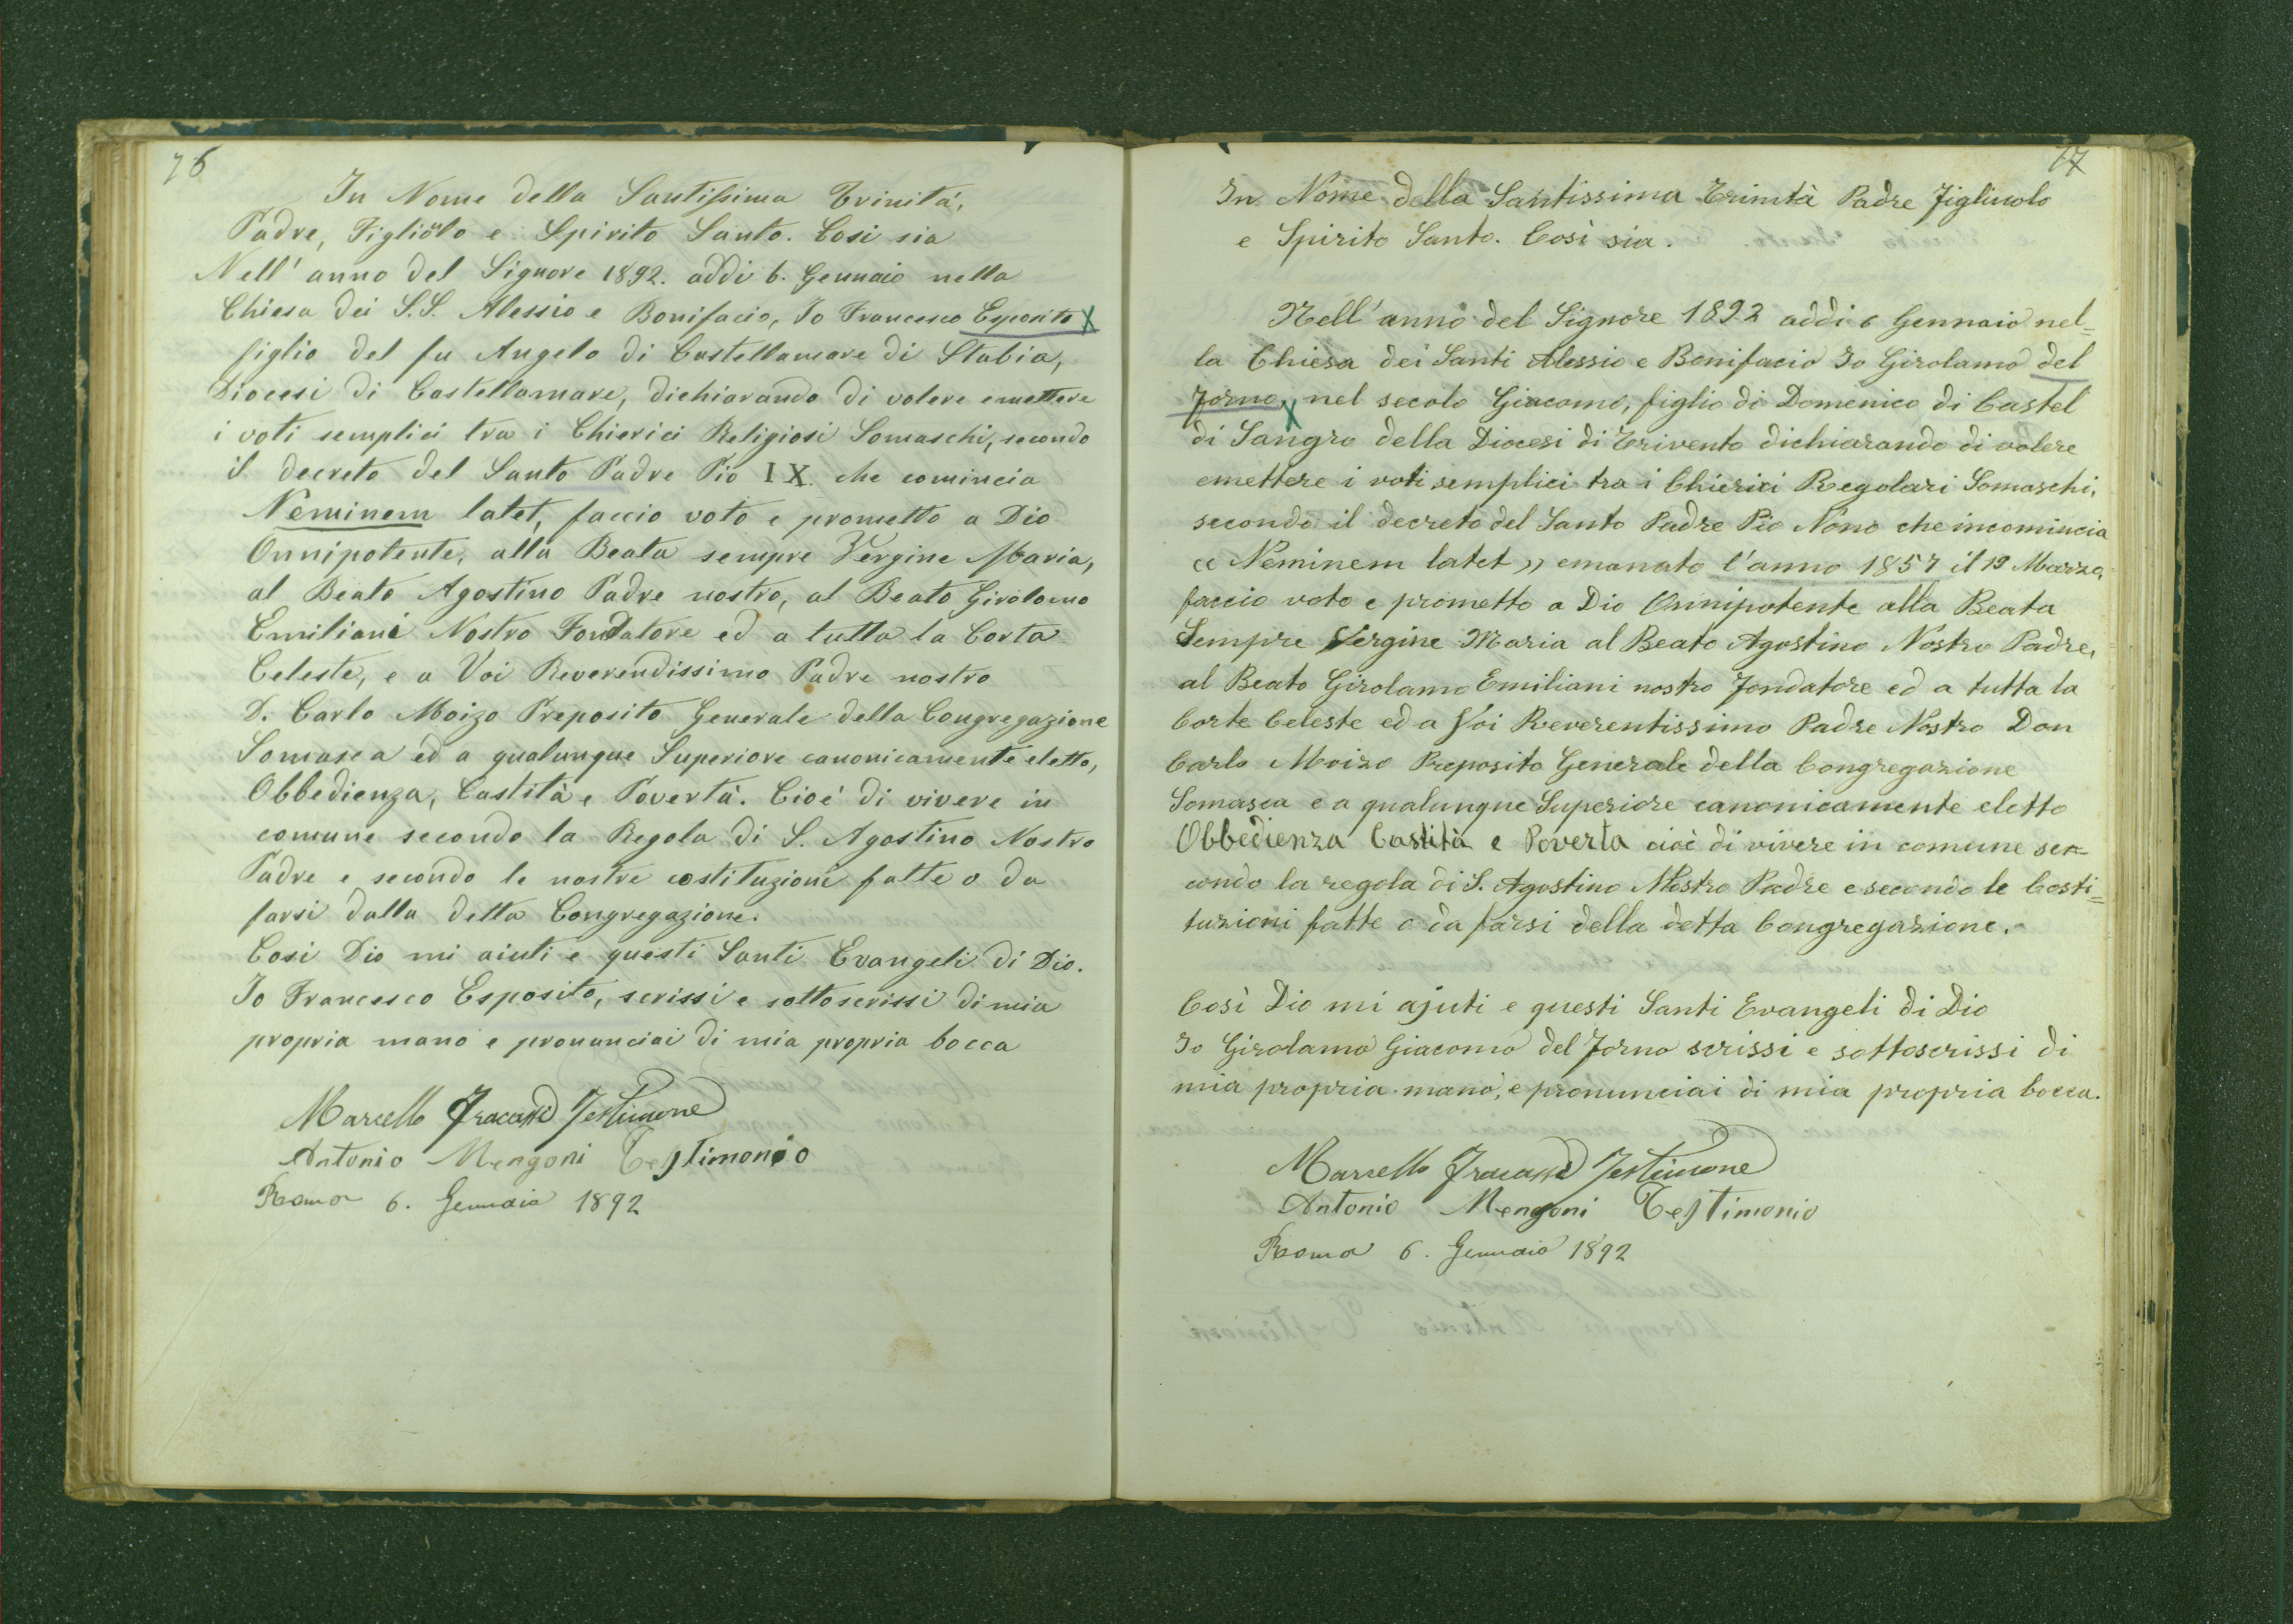 76
In Nome della Santissima Trinitá,
Padre, Figliolo e Spirito Santo. Cosi sia
Nell' anno del Signore 1892. addi 6. Gennaio nella
Chiesa dei S.S. Alessio e Bonifacio, Io Francesco Esposito X
figlio del fu Angelo di Castellamare di Stabia,
Diocesi di Castellamare, dichiarando di volere emettere
i voti semplici tra i Chierici Religiosi Somaschi, secondo
il decreto del Santo Padre Pio IX. che comincia
Neminem latet, faccio voto e prometto a Dio
Onnipotente, alla Beata sempre Vergine Maria,
al Beato Agostino Padre nostro, al Beato Girolamo
Emiliani Nostro Fondatore ed a tutta la Corta
Celeste, e a Voi Reverendissimo Padre nostro
D. Carlo Moizo Preposito Generale della Congregazione
Somasca ed a qualunque Superiore canonicamente eletto,
Obbedienza, Castità e Povertà. Cioé di vivere in
comune secondo la Regola di S. Agostino Nostro
Padre e secondo le nostre costituzioni fatte o da
farsi dalla detta Congregazione.
Cosi Dio mi aiuti e questi Santi Evangeli di Dio.
Io Francesco Esposito, scrissi e sottoscrissi di mia
propria mano e pronunciai di mia propria bocca
Marcello Fracassi Testimone
Antonio Mengoni Testimonio
Roma 6. Gennaio 1892
77
In Nome della Santissima Trinità Padre Figliuolo
e Spirito Santo. Così sia.
Nell' anno del Signore 1892 addi 6 Gennaio nel=
la Chiesa dei Santi Alessio e Bonifacio Io Girolamo del
Forno, X nel secolo Giacomo, figlio di Domenico di Castel
di Sangro della Diocesi di Trivento dichiarando di volere
emettere i voti semplici tra i Chierici Regolari Somaschi,
secondo il decreto del Santo Padre Pio Nono che incomincia
« Neminem latet » emanato l'anno 1857 il 19 Marzo,
faccio voto e prometto a Dio Onnipotente alla Beata
Sempre Vergine Maria al Beato Agostino Nostro Padre,
al Beato Girolamo Emiliani nostro Fondatore ed a tutta la
Corte Celeste ed a Voi Reverentissimo Padre Nostro Don
Carlo Moizo Preposito Generale della Congregazione
Somasca e a qualunque Superiore canonicamente eletto
Obbedienza Castità e Poverta cioè di vivere in comune se=
condo la regola di S. Agostino Nostro Padre e secondo le Costi=
tuzioni fatte o da farsi della detta Congregazione.
Così Dio mi ajuti e questi Santi Evangeli di Dio
Io Girolamo Giacomo del Forno scrissi e sottoscrissi di
mia propria mano, e pronunciai di mia propria bocca.
Marcello Fracassi Testimone
Antonio Mengoni Testimonio
Roma 6. Gennaio 1892